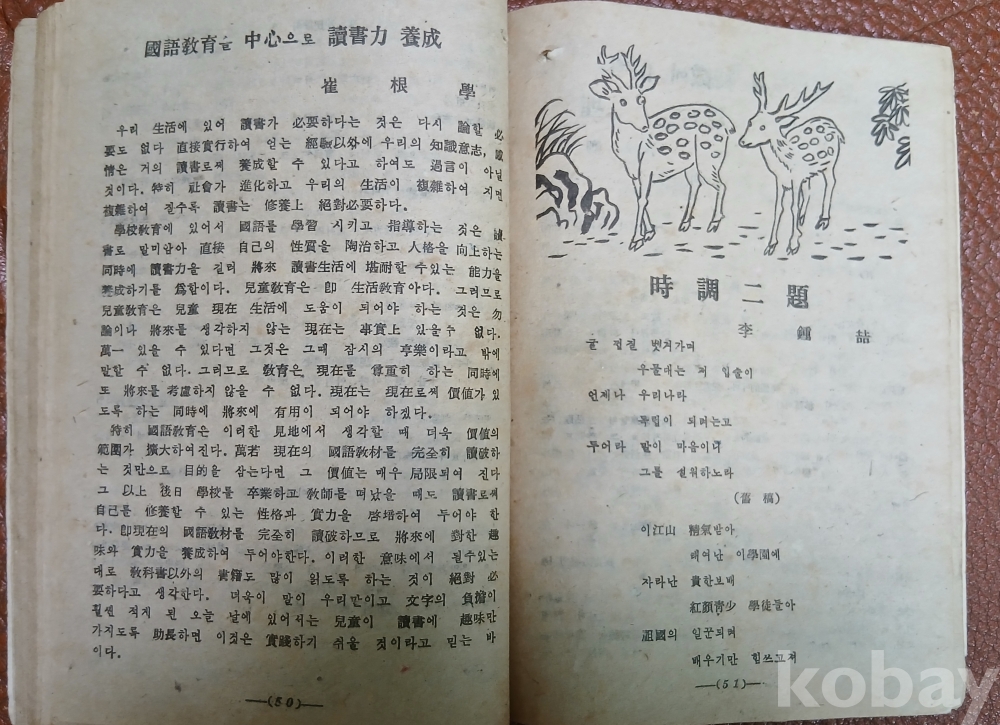 國語敎育을 中心으로 讀書力 養成
崔 根 學
우리 生活에 있어 讀書가 必要하다는 것은 다시 論할 必
要도 없다 直接實行하여 얻는 經驗以外에 우리의 知識意志,
情은 거의 讀書로써 養成할 수 있다고 하여도 過言이 아닐
것이다. 特히 社會가 進化하고 우리의 生活이 複雜하여 지면
複雜하여 질수록 讀書는 修養上 絕對必要하다.
學校敎育에 있어서 國語를 學習 시키고 指導하는 것은 讀
書로 말미암아 直接 自己의 性質을 陶冶하고 人格을 向上하는
同時에 讀書力을 길러 將來 讀書生活에 堪耐할 수있는 能力을
養成하기를 爲함이다. 兒童敎育은 卽 生活敎育아다. 그러므로
兒童敎育은 兒童 現在 生活에 도움이 되어야 하는 것은 勿
論이나 將來를 생각하지 않는 現在는 事實上 있을수 없다.
萬一 있을 수 있다면 그것은 그때 잠시의 享樂이라고 밖에
말할 수 없다. 그러므로 敎育은 現在를 尊重히 하는 同時에
도 將來를 考慮하지 않을 수 없다. 現在는 現在로써 價値가 있
도록 하는 同時에 將來에 有用이 되어야 하겠다.
特히 國語敎育은 이러한 見地에서 생각할 때 더욱 價値의
範圍가 擴大하여진다. 萬若 現在의 國語敎材를 完全히 讀破하
는 것만으로 目的을 삼는다면 그 價値는 매우 局限되여 진다
그 以上 後日 學校를 卒業하고 敎師를 떠났을 때도 讀書로써
自己를 修養할 수 있는 性格과 實力을 啓培하여 두어야 한
다. 卽現在의 國語敎材를 完全히 讀破하므로 將來에 對한 趣
味와 實力을 養成하여 두어야한다. 이러한 意味에서 될수있는
대로 敎科書以外의 書籍도 많이 읽도록 하는 것이 絕對 必
要하다고 생각한다. 더욱이 말이 우리만이고 文字의 負擔이
훨씬 적게 된 오늘 날에 있어서는 兒童이 讀書에 趣味만
가지도록 助長하면 이것은 實踐하기 쉬울 것이라고 믿는 바
이다.
—(50)—
時調二題
李 鍾 喆
굴 껍질 벗겨가며
우물대는 저 입술이
언제나 우리나라
독립이 되려는고
두어라 말이 마음이니
그를 설워하노라
(舊 稿)
이江山 精氣받아
태여난 이學園에
자라난 貴한보배
紅顏靑少 學徒들아
祖國의 일꾼되며
배우기만 힘쓰고저
—(51)—
kobay